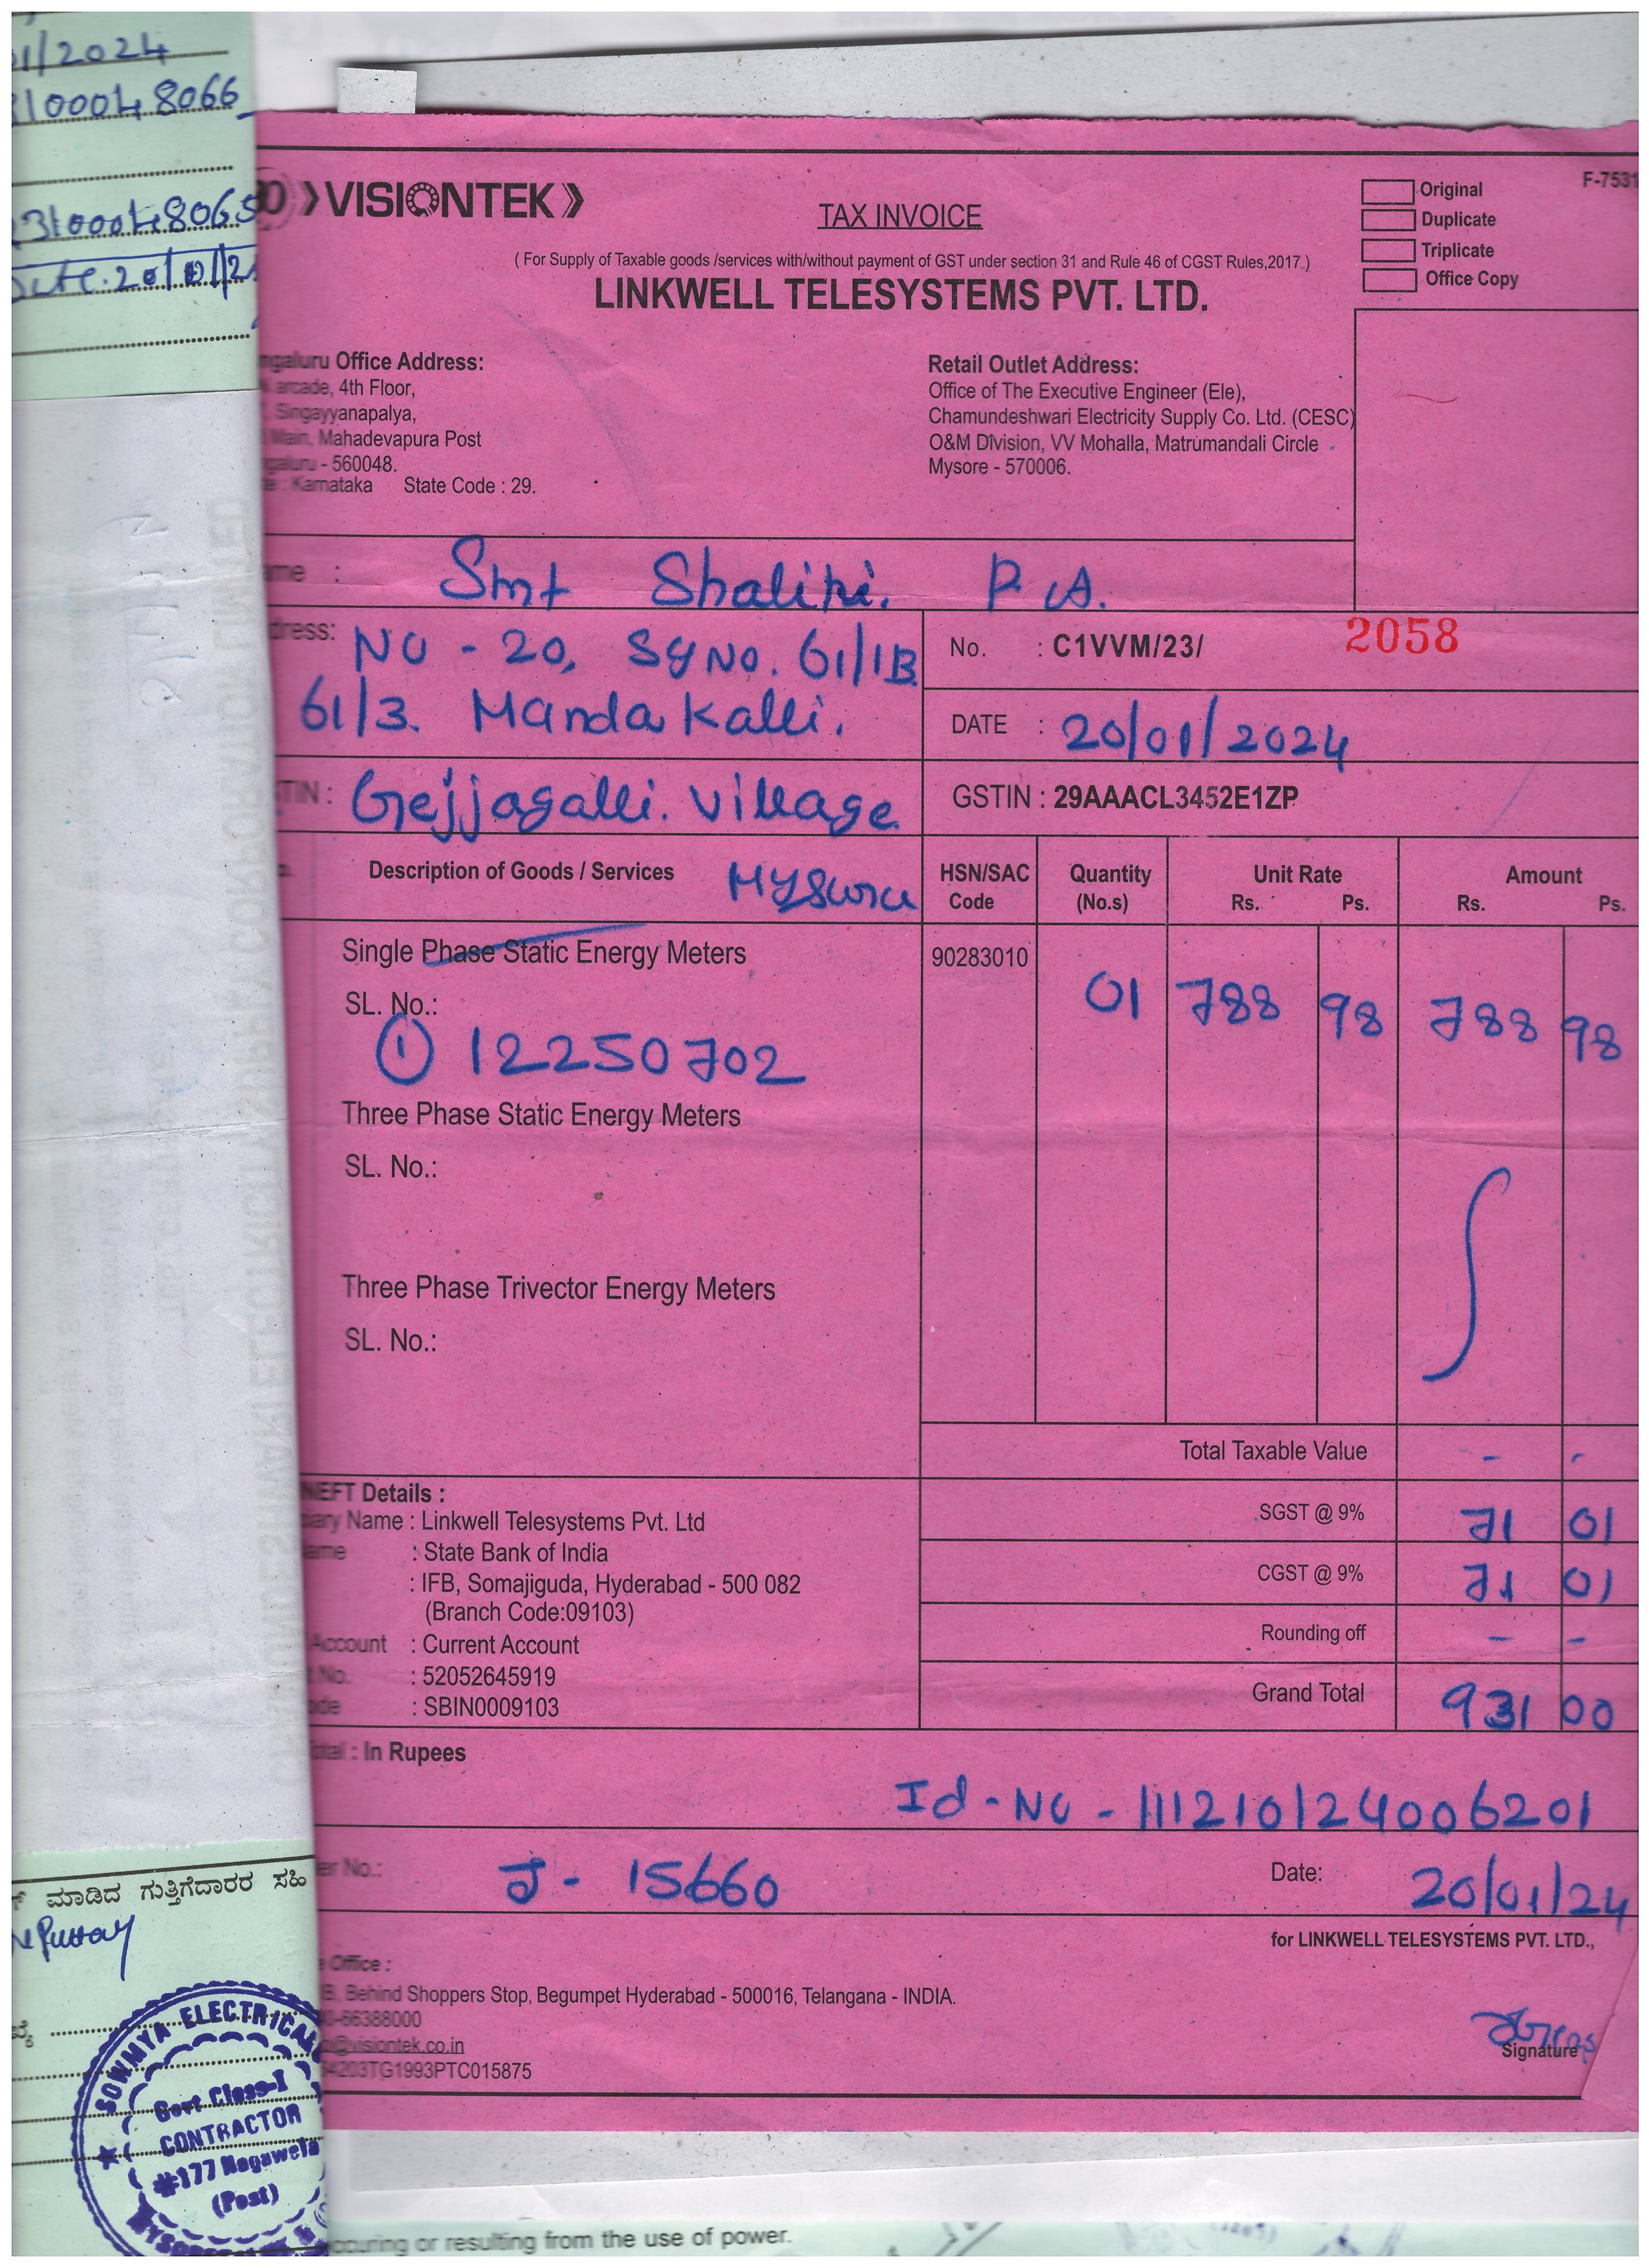 01/2024
3100048066
23100048065
Date. 20/01/2
VISIONTEK
TAX INVOICE
Original
Duplicate
Triplicate
Office Copy
F-7531
( For Supply of Taxable goods /services with/without payment of GST under section 31 and Rule 46 of CGST Rules,2017.)
LINKWELL TELESYSTEMS PVT. LTD.
ngaluru Office Address:
arcade, 4th Floor,
Singayyanapalya,
Main, Mahadevapura Post
galuru - 560048.
: Karnataka State Code : 29.
Retail Outlet Address:
Office of The Executive Engineer (Ele),
Chamundeshwari Electricity Supply Co. Ltd. (CESC)
O&M Division, VV Mohalla, Matrumandali Circle
Mysore - 570006.
ame : Smt Shalini. P. A.
dress: NO - 20, Sy No. 61/1B
61/3. Manda Kalli.
No. : C1VVM/23/ 2058
DATE : 20/01/2024
TIN : Gejjagalli. Village
GSTIN : 29AAACL3452E1ZP
Description of Goods / Services Mysuru
HSN/SAC Code
Quantity (No.s)
Unit Rate Rs. Ps.
Amount Rs. Ps.
Single Phase Static Energy Meters 90283010
SL. No.: 01 788 98 788 98
① 12250702
Three Phase Static Energy Meters
SL. No.:
Three Phase Trivector Energy Meters
SL. No.:
Total Taxable Value - -
NEFT Details :
iary Name : Linkwell Telesystems Pvt. Ltd
SGST @ 9% 71 01
ame : State Bank of India
: IFB, Somajiguda, Hyderabad - 500 082
(Branch Code:09103)
CGST @ 9% 71 01
Account : Current Account
Rounding off - -
No. : 52052645919
ode : SBIN0009103
Grand Total 931 00
otal : In Rupees
Id - No - 111210124006201
er No.: J - 15660
Date: 20/01/24
for LINKWELL TELESYSTEMS PVT. LTD.,
Office :
B, Behind Shoppers Stop, Begumpet Hyderabad - 500016, Telangana - INDIA.
0-66388000
@visiontek.co.in
4203TG1993PTC015875
Signature
ಮಾಡಿದ ಗುತ್ತಿಗೆದಾರರ ಸಹಿ
SOWMYA ELECTRICAL
Govt Class-I
CONTRACTOR
#177 Nagawala
(Post)
ccuring or resulting from the use of power.